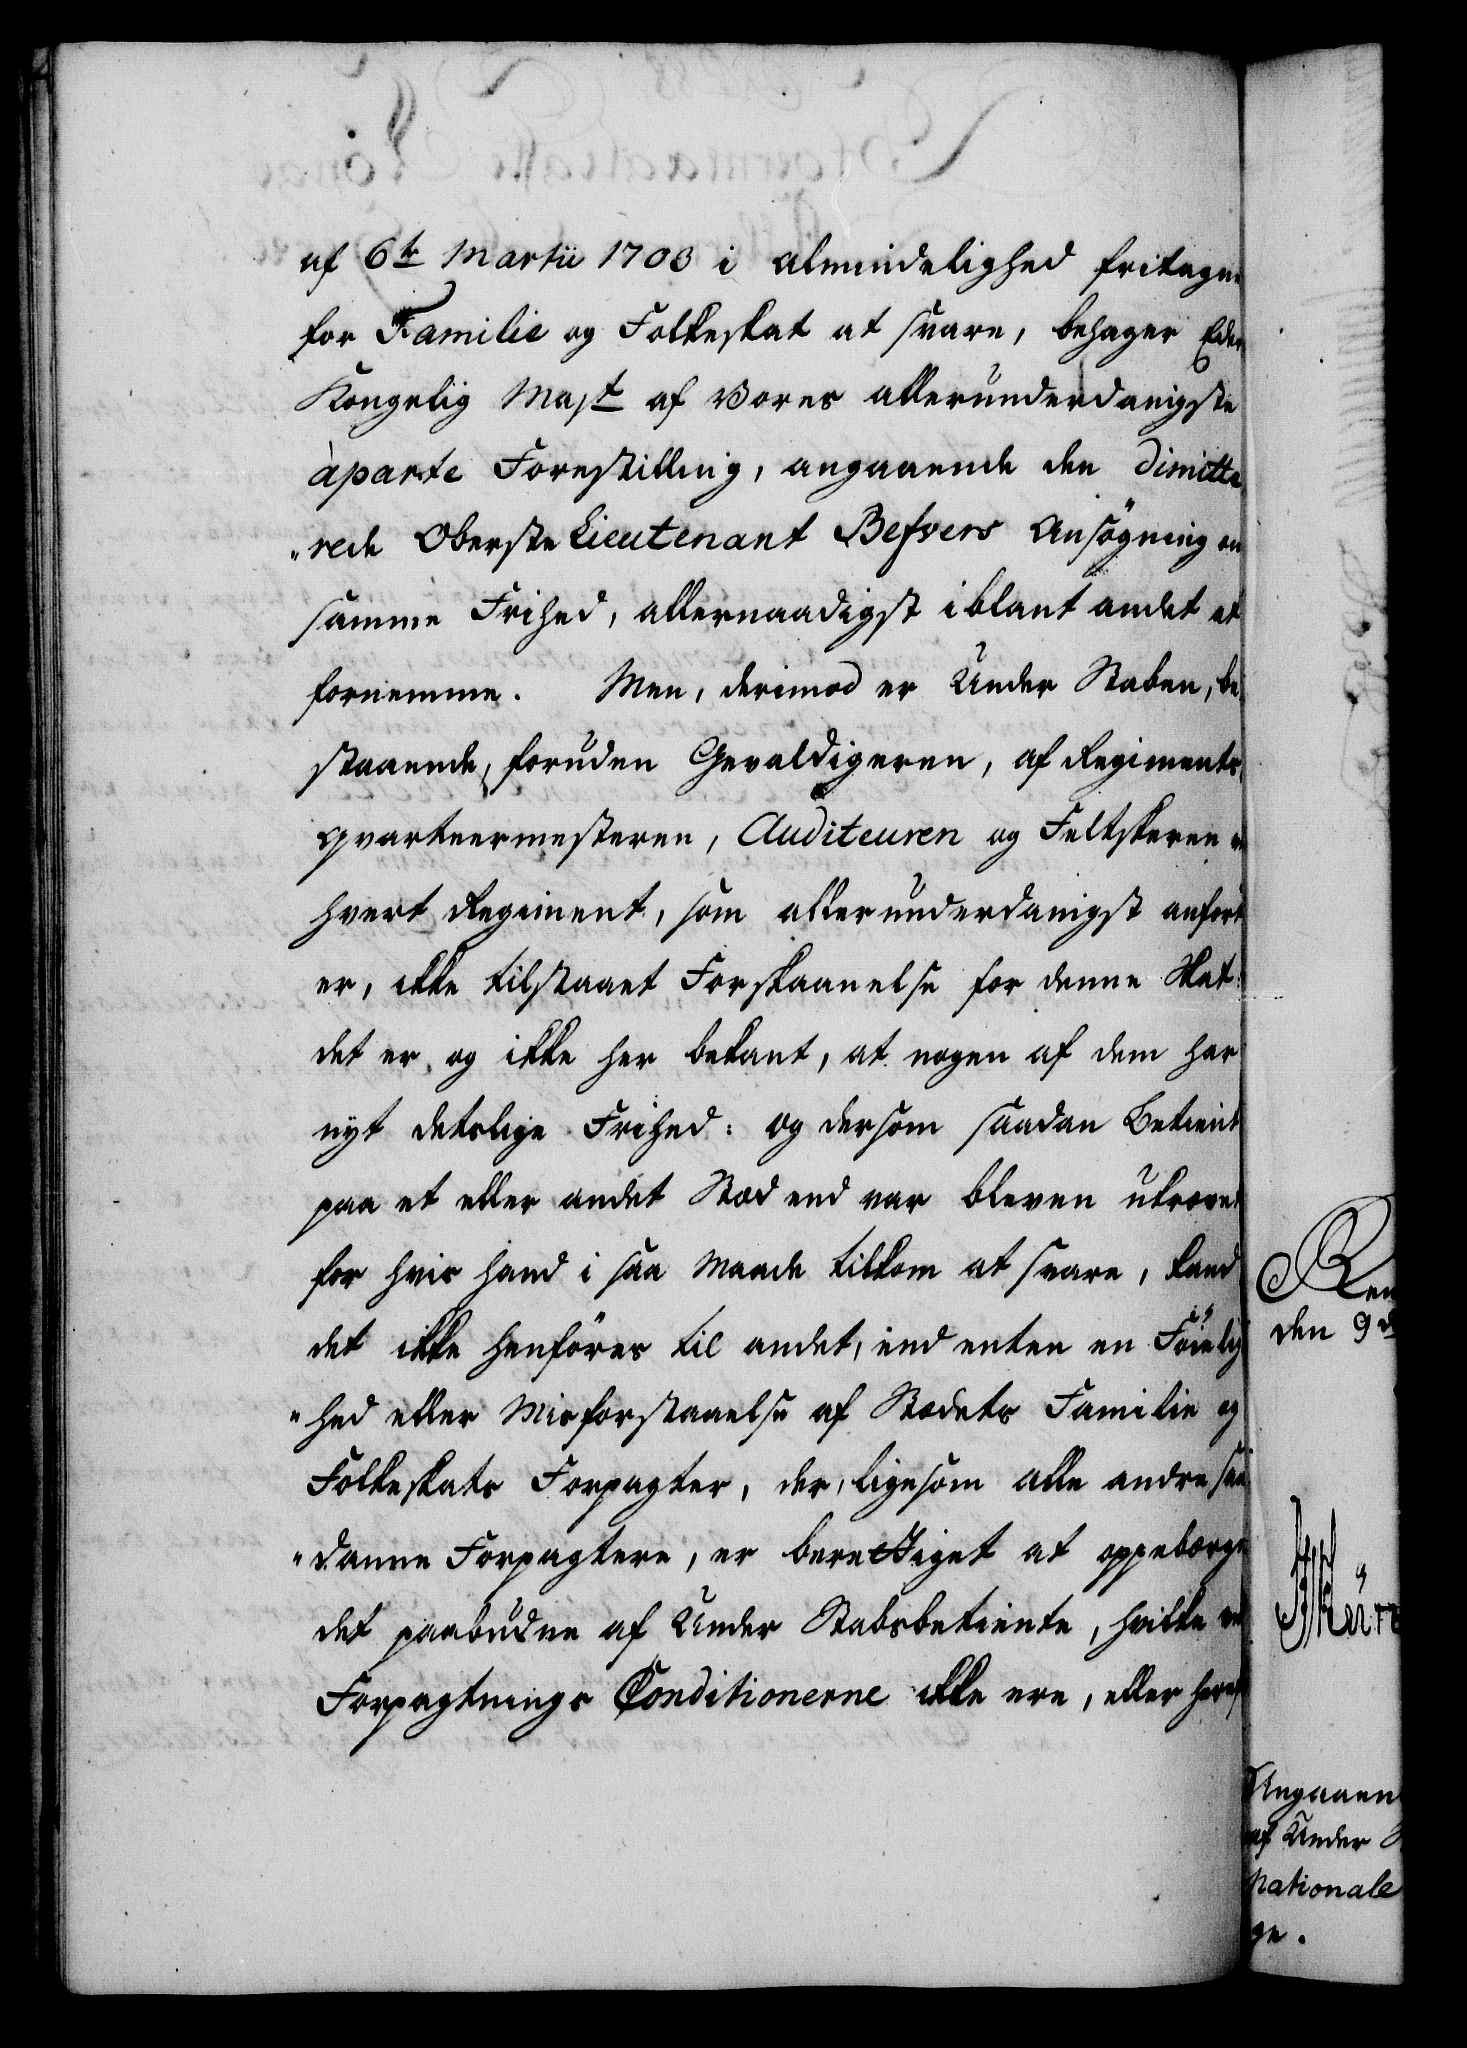 af 6te Martii 1703 i almindelighed fritagne
for Familie og Folkeskat at svare, behager Eders
Kongelig Mayt af Vores allerunderdanigste
àparte Forestilling, angaaende den dimitte
"rede Oberste Lieutenant Befvers Ansögning om
samme Frihed, allernaadigst iblant andet at
fornemme. Men, derimod er Under Staben, be
staaende, foruden Gevaldigeren, af Regiments
qvarteermesteren, Auditeuren og Feltskeren ved
hvert Regiment, som allerunderdanigst anfört
er, ikke tilstaaet Forskaanelse for denne Skat:
det er og ikke her bekant, at nogen af dem har
nyt detslige Frihed: og dersom saadan Betient
paa et eller andet Stæd end var bleven ukrævet
for hvis hand i saa Maade tilkom at svare, kand
det ikke henföres til andet, end enten en Föielig
"hed eller Misforstaaelse af Stædets Familie og
Folkeskats Forpagter, der, ligesom alle andre saa
"danne Forpagtere, er berettiget at oppebærge
det paabudne af Under Stabsbetiente, hvilke ved
Forpagtnings Conditionerne ikke ere, eller her
den 9d
Angaaen
af Under
Nationale
ge.